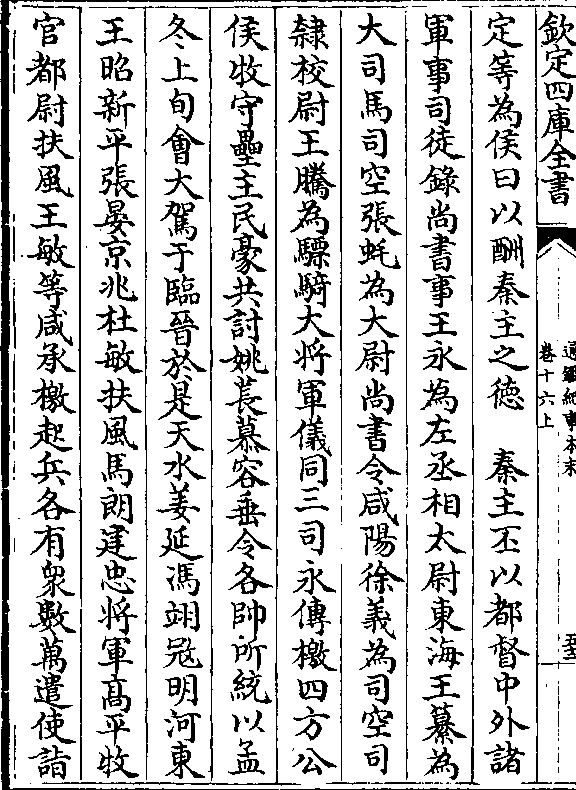 欽定四庫全書
通鑑紀事本末
卷十六上
定等為侯曰以酬秦主之徳　秦主丕以都督中外諸
軍事司徒錄尚書事王永為左丞相太尉東海王纂為
大司馬司空張蚝為太尉尚書令咸陽徐義為司空司
隸校尉王騰為驃騎大將軍儀同三司永傳檄四方公
侯牧守壘主民豪共討姚萇慕容垂令各帥所統以孟
冬上旬會大駕于臨晉於是天水姜延馮翊寇明河東
王昭新平張晏京兆杜敏扶風馬朗建忠將軍髙平牧
官都尉扶風王敏等咸承檄起兵各有衆數萬遣使詣